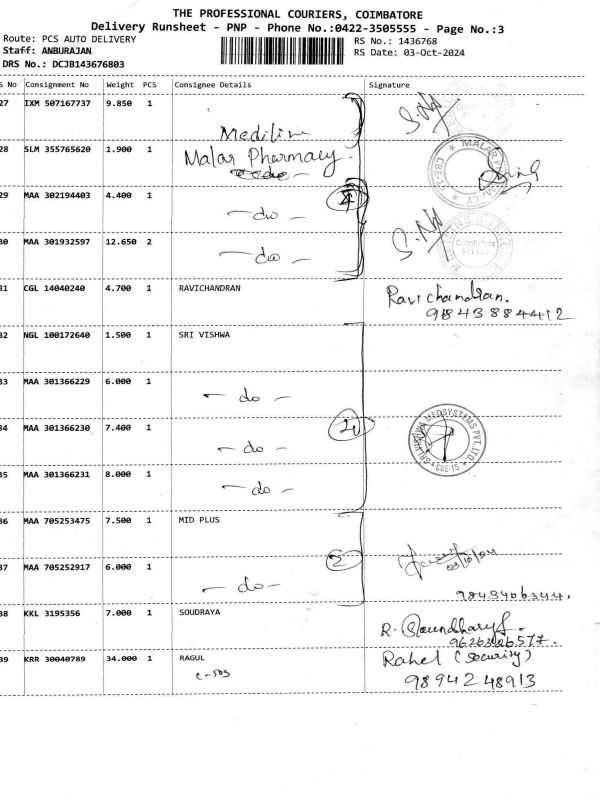 THE PROFESSIONAL COURIERS, COIMBATORE
Delivery Runsheet - PNP - Phone No.:0422-3505555 - Page No.:3
Route: PCS AUTO DELIVERY
RS No.: 1436768
Staff: ANBURAJAN
RS Date: 03-Oct-2024
DRS No.: DCJB143676803
S No Consignment No Weight PCS Consignee Details Signature
27 IXM 507167737 9.850 1
Mediline
28 SLM 355765620 1.900 1 Malar Pharmacy.
MALAR PHARMACY
CBE-15
29 MAA 302194403 4.400 1
4
- do -
30 MAA 301932597 12.650 2
- do -
Coimbatore
31 CGL 14040240 4.700 1 RAVICHANDRAN Ravichandran.
9843884412
32 NGL 100172640 1.500 1 SRI VISHWA
33 MAA 301366229 6.000 1
- do -
34 MAA 301366230 7.400 1
4
- do -
SRI VISHWA MEDSYSTEMS PVT.LTD.
* CBE-15 *
35 MAA 301366231 8.000 1
- do -
36 MAA 705253475 7.500 1 MID PLUS
2
37 MAA 705252917 6.000 1
- do -
38 KKL 3195356 7.000 1 SOUDRAYA
R.
9626326577.
39 KRR 30040789 34.000 1 RAGUL Rahel (Security)
c-503
9894248913